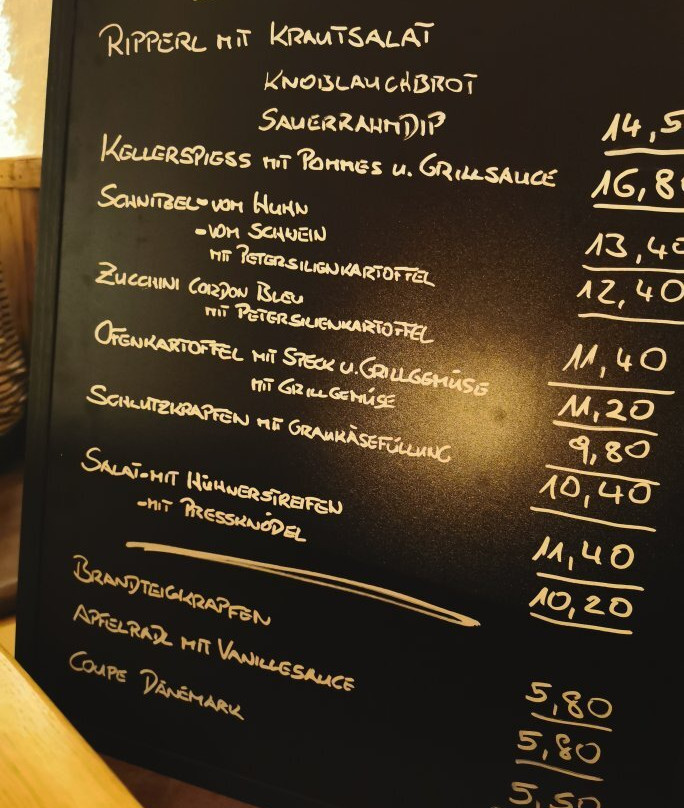 RIPPERL MIT KRAUTSALAT
KNOBLAUCHBROT
SAUERRAHMDIP 14,5
KELLERSPIESS MIT POMMES U. GRILLSAUCE 16,8
SCHNITZEL-VOM HUHN 13,40
-VOM SCHWEIN 12,40
MIT PETERSILIENKARTOFFEL
ZUCCHINI CORDON BLEU 11,40
MIT PETERSILIENKARTOFFEL
OFENKARTOFFEL MIT SPECK U. GRILLGEMÜSE 11,20
MIT GRILLGEMÜSE 9,80
SCHLUTZKRAPFEN MIT GRAUKÄSEFÜLLUNG 10,40
SALAT-MIT HÜHNERSTREIFEN 11,40
-MIT PRESSKNÖDEL 10,20
BRANDTEIGKRAPFEN 5,80
APFELRADL MIT VANILLESAUCE 5,80
COUPE DÄNEMARK 5,50